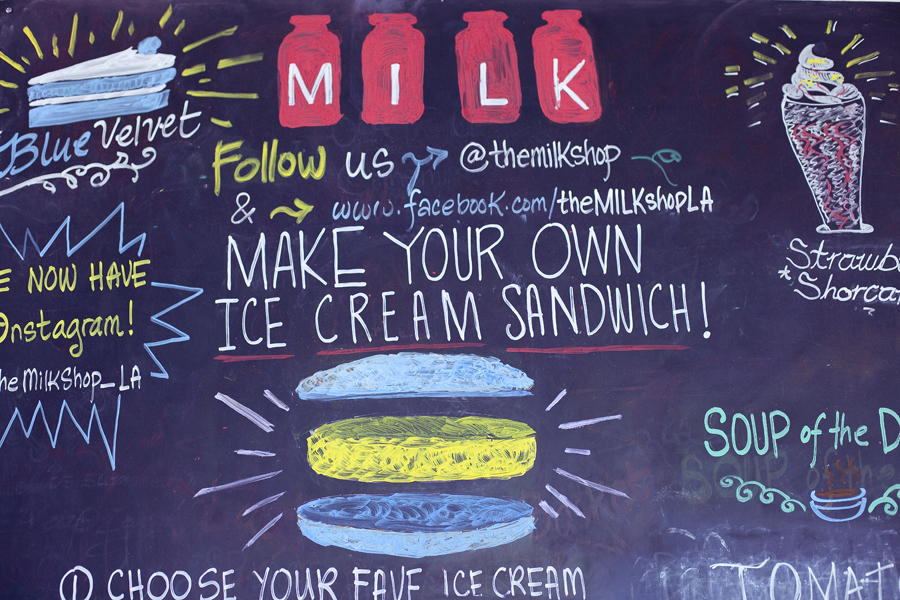 MILK
Blue Velvet
Follow us @themilkshop
& www.facebook.com/theMILKshopLA
MAKE YOUR OWN
ICE CREAM SANDWICH!
E NOW HAVE
Instagram!
heMilkShop_LA
Strawb
*Shorca
SOUP of the D
TOMAT
① CHOOSE YOUR FAVE ICE CREAM